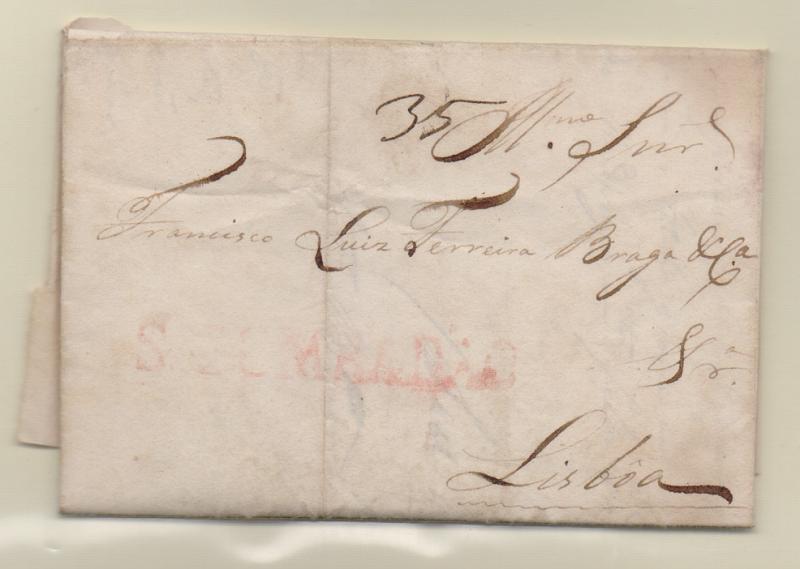 35 Mme Snr
Francisco Luiz Ferreira Braga & Ca
Lisbôa